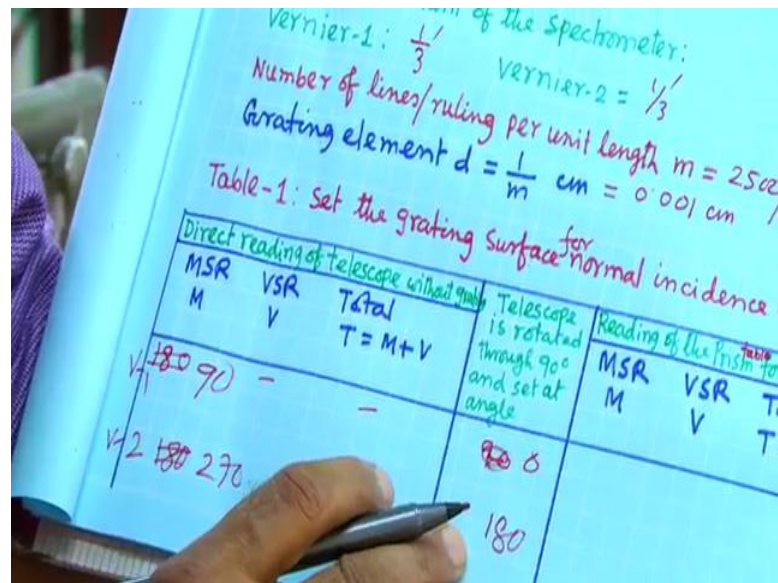 of the Spectrometer:
Vernier-1: 1/3' Vernier-2 = 1/3'
Number of lines/ruling per unit length m = 2502
Grating element d = 1/m cm = 0.001 cm
Table-1: Set the grating surface for normal incidence
Direct reading of telescope without
MSR VSR Total
M V T = M+V
Telescope
is rotated
through 90°
and set at
angle
Reading of the Prism table for
MSR VSR
M V T
V-1 180 90 - -
0
V-2 180 270
180